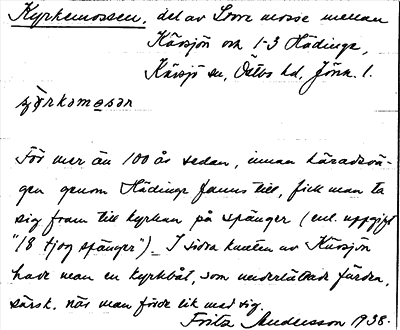 Kyrkemossen, del av Store mosse mellan
Kävsjön och 1-3 Hädinge,
Kävsjö sn, Östbo hd, Jönk. l.
ɕjörkəmɵsən
För mer än 100 år sedan, innan häradsvä-
gen genom Hädinge fanns till, fick man ta
sig fram till kyrkan på spänger (enl. uppgift
"18 tjog spänger"). I södra kanten av Kävsjön
hade man en kyrkbåt, som underlättade färden,
särsk. när man förde lik med sig.
Fritz Andersson 1938.